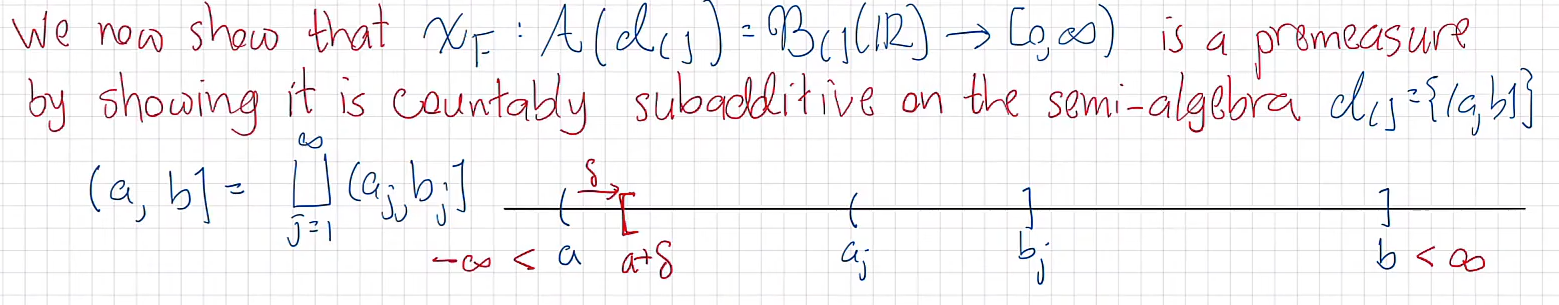 We now show that χ_F : A(d_(]) = B_(](ℝ) → [0,∞) is a premeasure
by showing it is countably subadditive on the semi-algebra d_(] = {(a,b]}
(a, b] = ⨆_{j=1}^{∞} (a_j, b_j]
δ
( [ ( ] ]
-∞ < a a+δ a_j b_j b < ∞